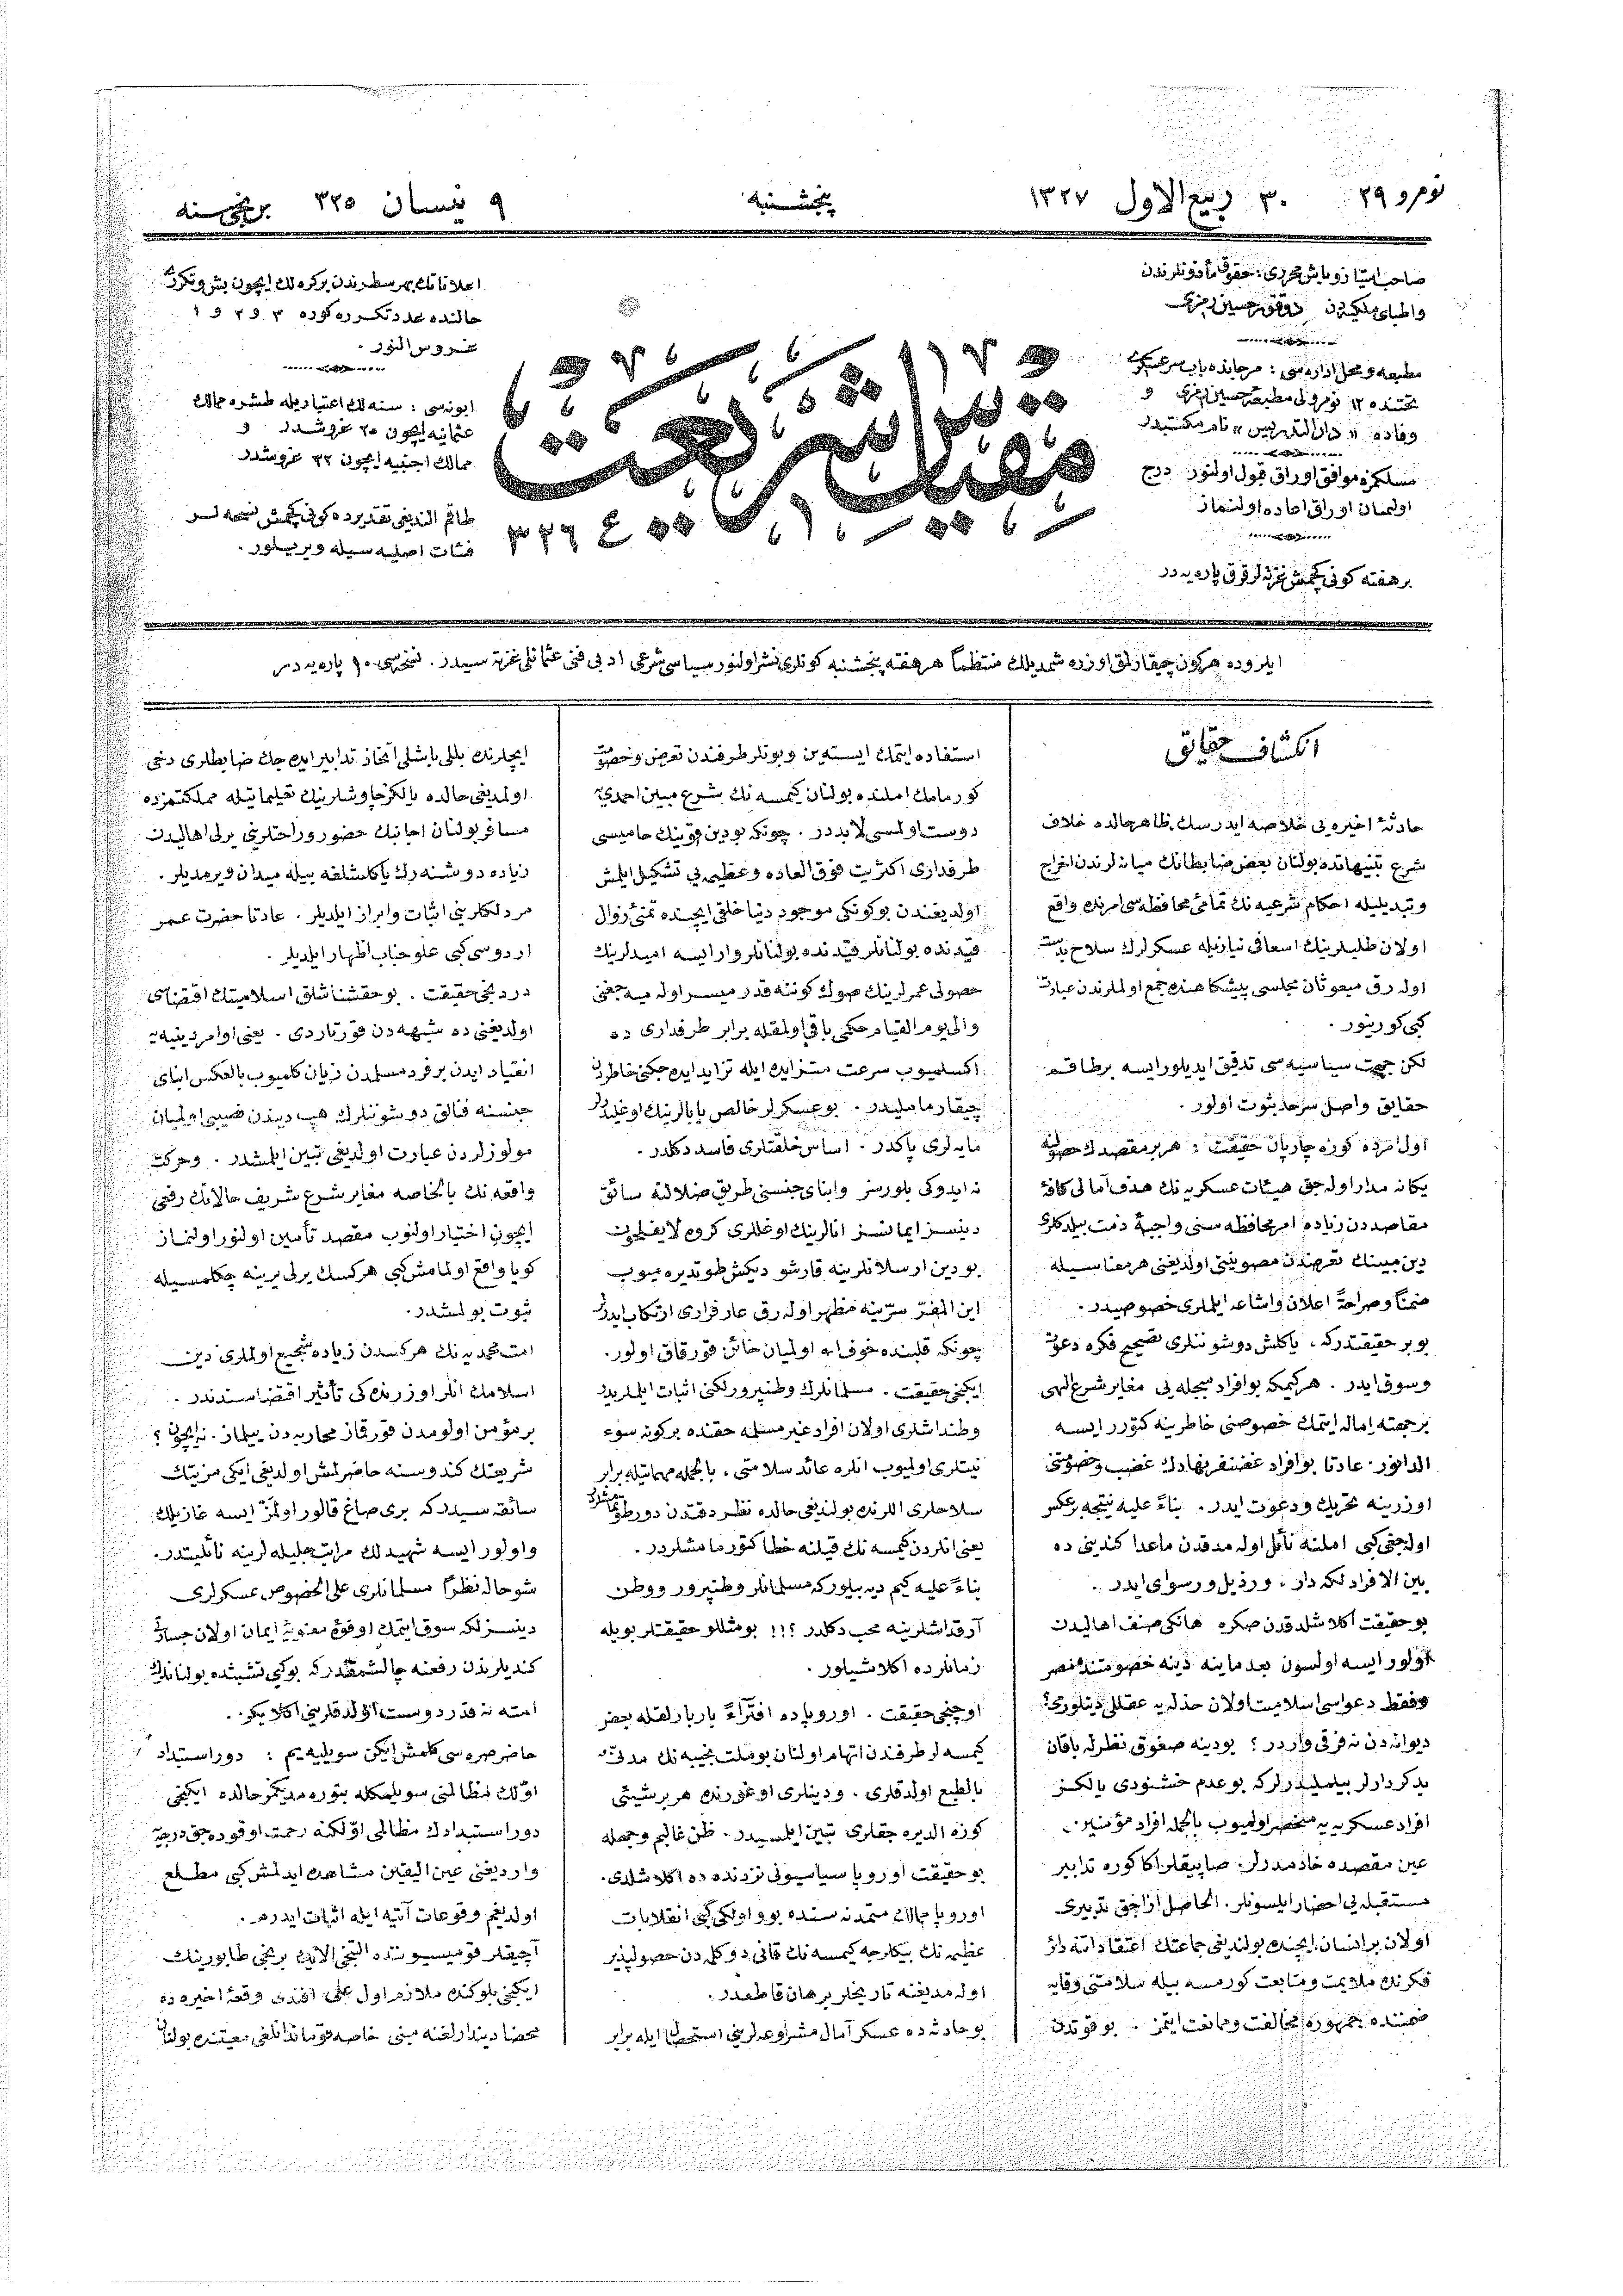 نومرو ٢٩
٣٠ ربيع الاول ١٣٢٧
پنجشنبه
٩ نيسان ٣٢٥
برنجى سنه
صاحب امتياز وباش محررى : حقوق مأذونلرندن
واطباى ملكيه‌دن دوقتور حسين رمزى
مطبعه و محل اداره‌سى : مرجانده باب سرعسكرى
تحتنده ١٢ نومرولى مطبعهٔ حسين رمزى و
وفاده « دار التدريس » نام مكتبدر
مسلكمزه موافق اوراق قبول اولنور درج
اولنميان اوراق اعاده اولنماز
بر هفته كونى كچمش غزته‌لر قرق پاره‌يه‌در
مقياس شريعت
١ ع ٣٢٦
اعلاناتك بهر سطرندن بر كره‌لك ايچون بش وتكررى
حالنده عدد تكرره كوره ٣ و ٢ و ١
غروش النور .
ابونه‌سى : سنه‌لك اعتباريله طشره ممالك
عثمانيه ايچون ٢٥ غروشدر و
ممالك اجنبيه ايچون ٣٢ غروشدر
طاقم النديغى تقديرده كونى كچمش نسخه‌لر
فئات اصليه‌سيله ويريلور .
ايلروده هركون چيقارلمق اوزره شمديلك منتظماً هر هفته پنجشنبه كونلرى نشر اولنور سياسى شرعى ادبى فنى عثمانلى غزته‌سيدر . نسخه‌سى ١٠ پاره‌يه‌در
انكشاف حقايق
حادثهٔ اخيره‌يى خلاصه ايدرسك ظاهر حالده خلاف
شرع تنبيهاتده بولنان بعض ضابطانك ميانه‌لرندن اخراج
وتبديليله احكام شرعيه‌نك تمامئ محافظه‌سى امرنده واقع
اولان طلبلرينك اسعافى نيازيله عسكرلرك سلاح بدست
اوله‌رق مبعوثان مجلسى پيشكاهنده جمع اولملرندن عبارت
كبى كورينور .
لكن جهت سياسيه‌سى تدقيق ايديلور ايسه بر طاقم
حقايق واصل سرحد ثبوت اولور .
اول امرده كوزه چارپان حقيقت : هر بر مقصدك حصولنه
يكانه مدار اوله‌جق هيئات عسكريه‌نك هدف آمالى كافهٔ
مقاصددن زياده امر محافظه‌سنى واجبهٔ ذمت بيلدكلرى
دين مبينك تعرضدن مصونيتى اولديغنى هر معناسيله
ضمناً وصراحةً اعلان واشاعه ايلملرى خصوصيدر .
بو بر حقيقتدركه ، ياكلش دوشوننلرى تصحيح فكره دعوت
وسوق ايدر . هر كيمكه بو افراد مبجله‌يى مغاير شرع الهى
بر جهته اماله ايتمك خصوصنى خاطرينه كتورر ايسه
الدانور . عادتا بو افراد غضنفر نهادك غضب وخصومتنى
اوزرينه تحريك ودعوت ايدر . بناءً عليه نتيجه برعكس
اوله‌جغى كبى املنه نائل اوله‌مدقدن ماعدا كندينى ده
بين الافراد لكه‌دار ، ورذيل ورسواى ايدر .
بو حقيقت اكلاشلدقدن صكره هانكى صنف اهاليدن
اولور ايسه اولسون بعدماينه دينه خصومتنده مصر
وفقط دعواسى اسلاميت اولان حذله‌يه عقللى دينلورمى ؟
ديوانه‌دن نه فرقى واردر ؟ بو دينه صغوق نظرله باقان
بدكردارلر بيلمليدرلركه بو عدم خشنودى يالكز
افراد عسكريه‌يه منحصر اولميوب بالجمله افراد مؤمنين
عين مقصده خادمدرلر . صاپيقلر اكا كوره تدابير
مستقبله‌يى احضار ايلسونلر . الحاصل از اجق تدبيرى
اولان بر انسان ايچنده بولنديغى جماعتك اعتقاداتنه دائر
فكرنده ملايمت ومتابعت كورمسه بيله سلامتنى وقايه
ضمننده جمهوره مخالفت وممانعت ايتمز . بو قوتدن
استفاده ايتمك ايسته‌ين وبونلر طرفندن تعرض وخصومت
كورمامك املنده بولنان كيمسه‌نك شرع مبين احمدى‌يه
دوست اولمسى لابددر . چونكه بو دين قوينك حاميسى
طرفدارى اكثريت فوق العاده وعظيمه‌يى تشكيل ايلمش
اولديغندن بوكونكى موجود دنيا خلقى ايچنده تمنئ زوال
قيدنده بولنانلر قيدنده بولنانلر وار ايسه اميدلرينك
حصولى عمرلرينك صوك كوننه قدر ميسر اوله‌ميه‌جغنى
والى يوم القيام حكمى باقى اولمقله برابر طرفدارى ده
اكسلميوب سرعت متزايده ايله تزايد ايده‌جكنى خاطردن
چيقارمامليدر . بو عسكرلر خالص بابالرينك اوغليدرلر
مايه‌لرى پاكدر . اساس خلقتلرى فاسد دكلدر .
نه ايدوكى بلورسز وابناى جنسنى طريق ضلالته سائق
دينسز ايمانسز انالرينك اوغللرى كروه لايفلحون
بو دين ارسلانلرينه قارشو ديكش طوتديره‌ميوب
اين المفر سرّينه مظهر اوله‌رق عار فرارى ارتكاب ايدر
چونكه قلبنده خوف الله اولميان خائن قورقاق اولور .
ايكنجى حقيقت . مسلمانلرك وطنپرورلكنى اثبات ايلملريدر
وطنداشلرى اولان افراد غير مسلمه حقنده بر كونه سوء
نيتلرى اولميوب انلره عائد سلامتى ، بالجمله مهماتيله برابر
سلاحلرى اللرنده بولنديغى حالده نظر دقتدن دور طوتمامشلردر
يعنى انلردن كيمسه‌نك قيلنه خطا كتورمامشلردر .
بناءً عليه كيم ديه بيلوركه مسلمانلر وطنپرور ووطن
آرقداشلرينه محب دكلدر ؟!! بو مثللو حقيقتلر بويله
زمانلرده اكلاشيلور .
اوچنجى حقيقت . اوروپاده افتراءً بارباراقله بعض
كيمسه‌لر طرفندن اتهام اولنان بو ملت نجيبه‌نك مدنىء
بالطبع اولدقلرى . ودينلرى اوغورنده هر بر شيئى
كوزه الديره‌جقلرى تبين ايلمسيدر . ظن غالبم وجهله
بو حقيقت اوروپا سياسيونى نزدنده ده اكلاشلدى .
اوروپا ممالك متمدنه‌سنده بو واولكى كبى انقلابات
عظيمه‌نك بيكلرجه كيمسه‌نك قانى دوكلمه‌دن حصولپذير
اوله‌مديغنه تاريخلر برهان قاطعدر .
بو حادثه‌ده عسكر آمال مشروعه‌لرينى استحصال ايله برابر
ايچلرنده بللى باشلى اتخاذ تدابير ايده‌جك ضابطلرى دخى
اولمديغى حالده يالكز چاوشلرينك تعليماتيله مملكتمزده
مسافر بولنان اجانبك حضور وراحتلرينى يرلى اهاليدن
زياده دوشنه‌رك ياكلشلغه بيله ميدان ويرمديلر .
مردلكلرينى اثبات وابراز ايلديلر . عادتا حضرت عمر
اردوسى كبى علو جناب اظهار ايلديلر .
دردنجى حقيقت . بو حقشناسلق اسلاميتك اقتضاسى
اولديغنى ده شبهه‌دن قورتاردى . يعنى اوامر دينيه‌يه
انقياد ايدن بر فرد مسلمدن زيان كلميوب بالعكس ابناى
جنسنه فنالق دوشوننلرك هپ دينده نصيبى اولميان
مولوزلردن عبارت اولديغى تبين ايلمشدر . وحركت
واقعه‌نك بالخاصه مغاير شرع شريف حالاتك رفعى
ايچون اختيار اولنوب مقصد تأمين اولنور اولنماز
كويا واقع اولمامش كبى هركسك يرلى يرينه چكلمسيله
ثبوت بولمشدر .
امت محمديه‌نك هركسدن زياده شجيع اولملرى دين
اسلامك انلر اوزرنده‌كى تأثير اقتضاسندندر .
بر مؤمن اولومدن قورقاز محاربه‌دن ييلماز . نه ايچون ؟
شريعتك كندوسنه حاضرلمش اولديغى ايكى مزيتك
سائقه‌سيدركه برى صاغ قالور اولمز ايسه غازيلك
واولور ايسه شهيدلك مراتب جليله‌لرينه نائليتدر .
شو حاله نظراً مسلمانلرى على الخصوص عسكرلرى
دينسزلكه سوق ايتمك او قوهٔ معنويهٔ ايمان اولان جسارتى
كنديلرندن رفعنه چالشمقدركه بو كبى تشبثده بولنانلرك
امته نه قدر دوست اولدقلرينى اكلايكز .
حاضر صره‌سى كلمش ايكن سويليه‌يم : دور استبداد
اولك مظالمنى سويلمكله بتوره‌مديكمز حالده ايكنجى
دور استبدادك مظالمى اولكنه رحمت اوقوده‌جق درجه‌يه
وارديغنى عين اليقين مشاهده ايدلمش كبى مطلع
اولديغم وقوعات آتيه ايله اثبات ايدرم .
آچيقلر قوميسيوننده التنجى الايك برنجى طابورينك
ايكنجى بلوكنده ملازم اول على افندى وقعهٔ اخيره‌ده
محضا ديندارلغنه مبنى خاصه قومانداNلغى معيتنده بولنان